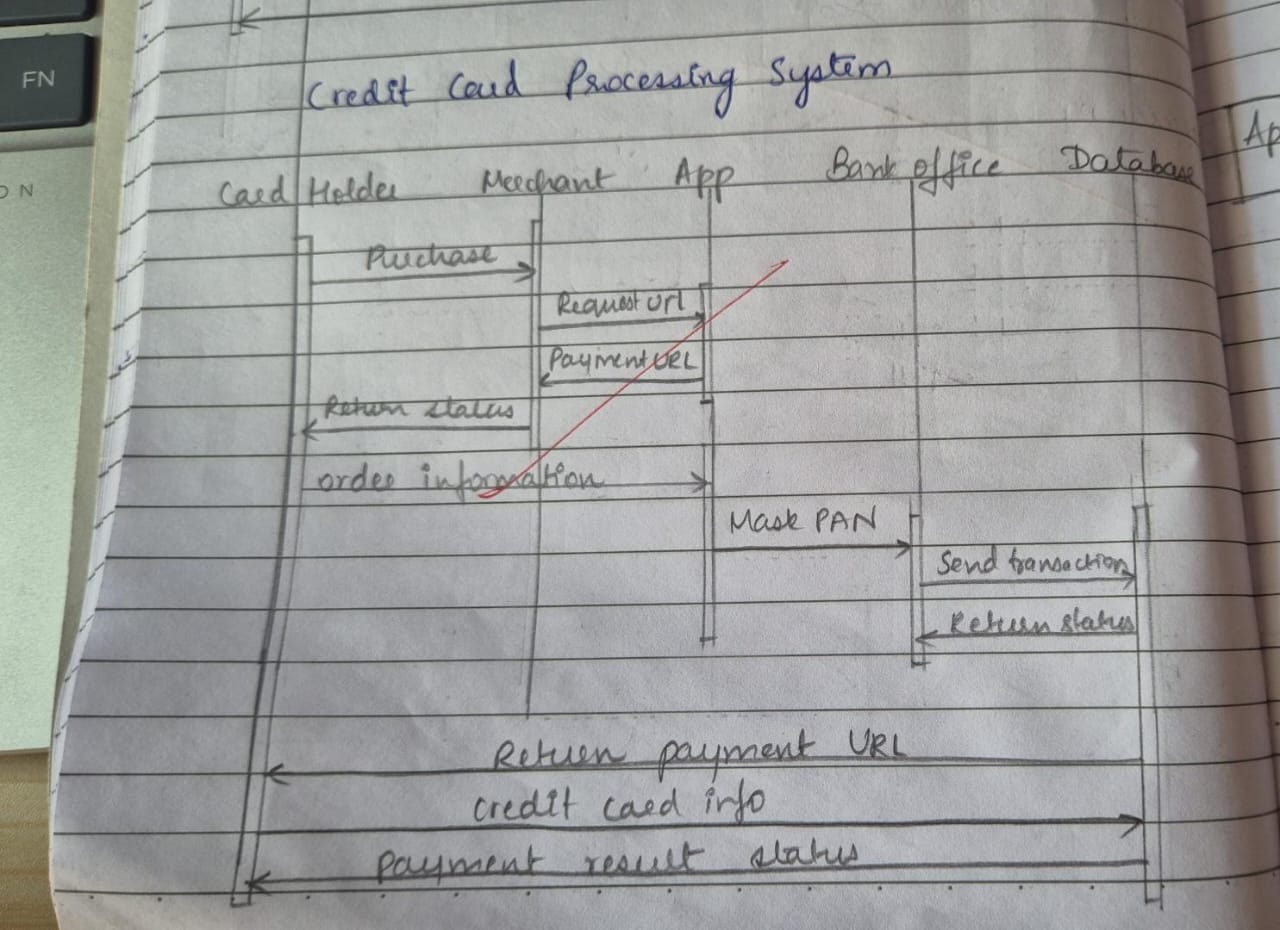 FN
ON
Credit Card Processing System
Card Holder Merchant App Bank office Database
Purchase
Request Url
Payment URL
Return status
order information
Mask PAN
Send transaction
Return status
Return payment URL
credit card info
payment result status
Ap